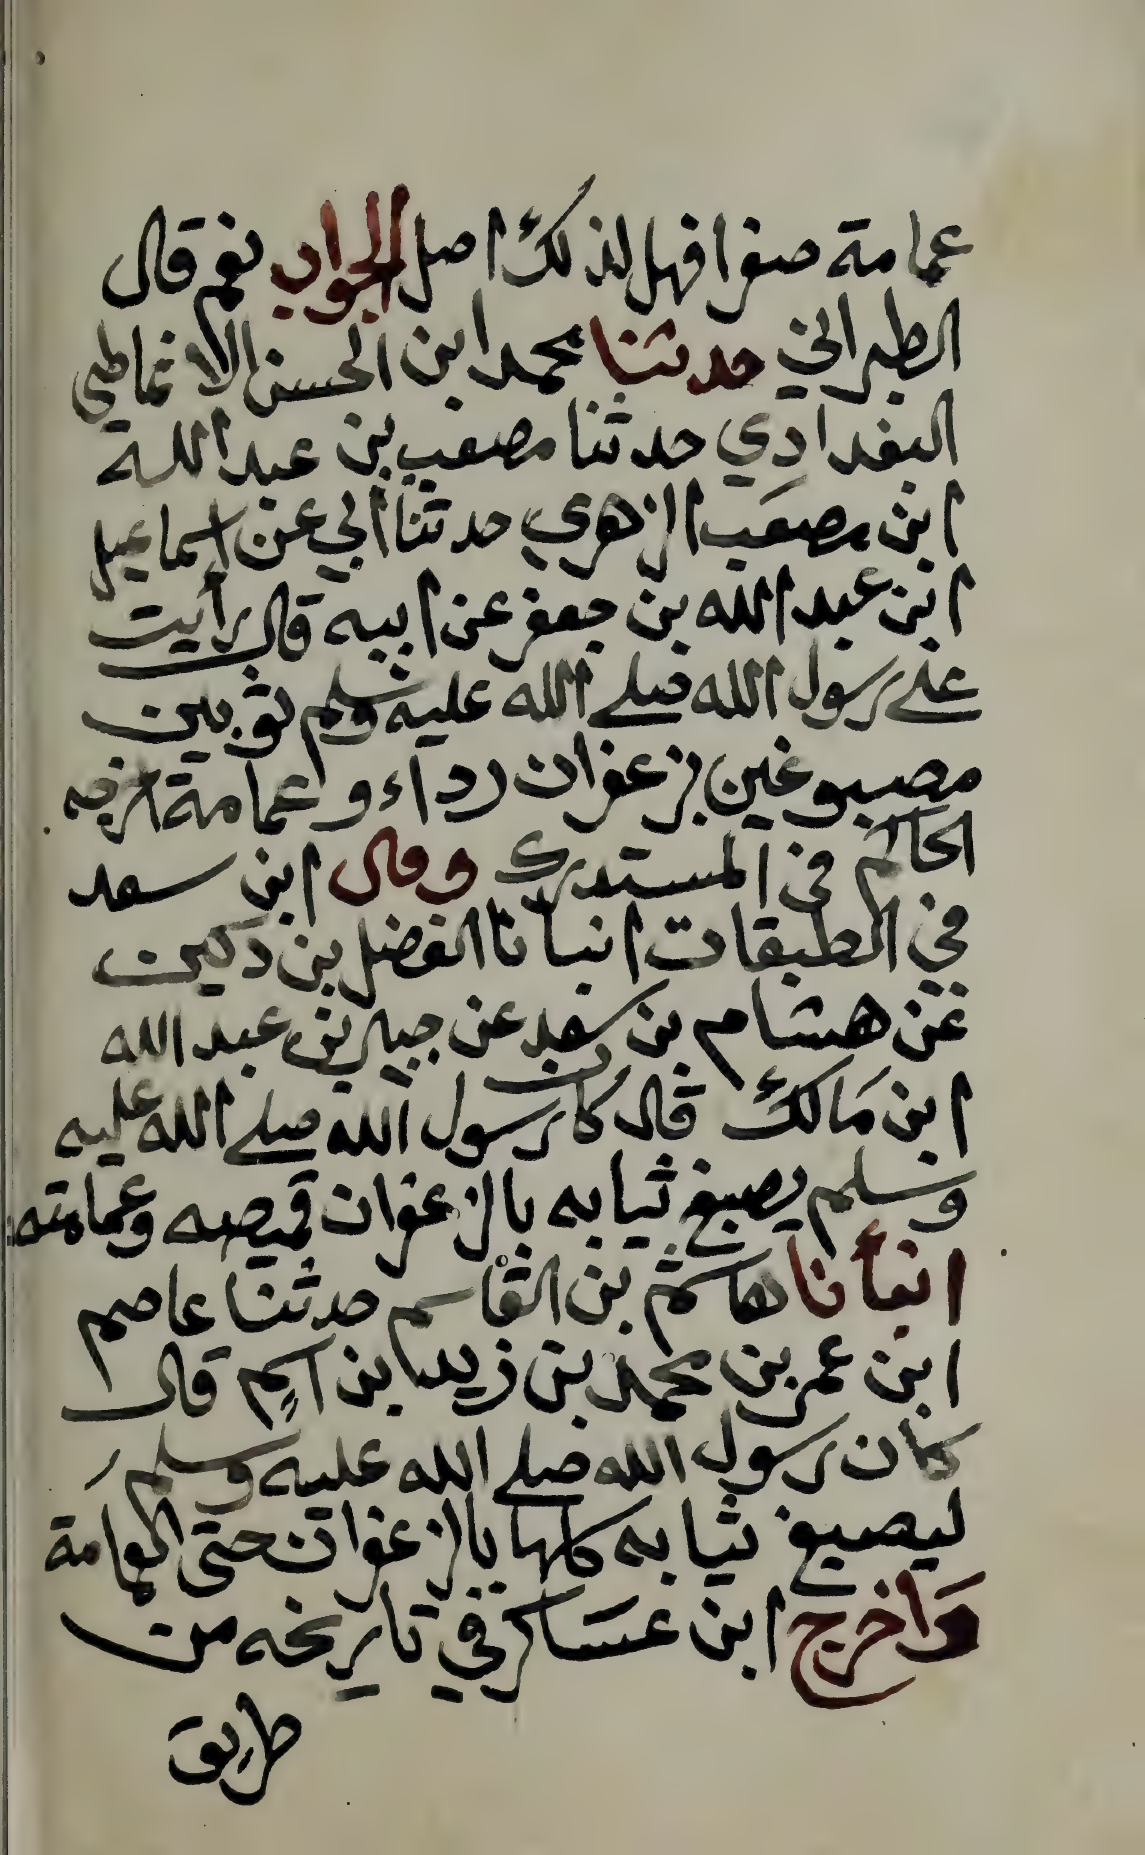 عمامة صفرا فهل لذلك اصل الجواب نعم قال
الطبراني حدثنا محمد ابن الحسن الانماطي
البغدادي حدثنا مصعب بن عبد الله
ابن مصعب الزهري حدثنا أبي عن اسماعيل
ابن عبد الله بن جعفر عن ابيه قال رأيت
على رسول الله صلى الله عليه وسلم ثوبين
مصبوغين بزعفران رداء وعمامة اخرجه
الحاكم في المستدرك وقال ابن سعد
في الطبقات انبأنا الفضل بن دكين
عن هشام بن سعد عن جبير بن عبد الله
ابن مالك قال كان رسول الله صلى الله عليه
وسلم يصبغ ثيابه بالزعفران قميصه وعمامته
انبأنا هاشم بن القاسم حدثنا عاصم
ابن عمر بن محمد بن زيد ابن اسلم قال
كان رسول الله صلى الله عليه وسلم
ليصبغ ثيابه كلها بالزعفران حتى العمامة
واخرج ابن عساكر في تاريخه من
طريق